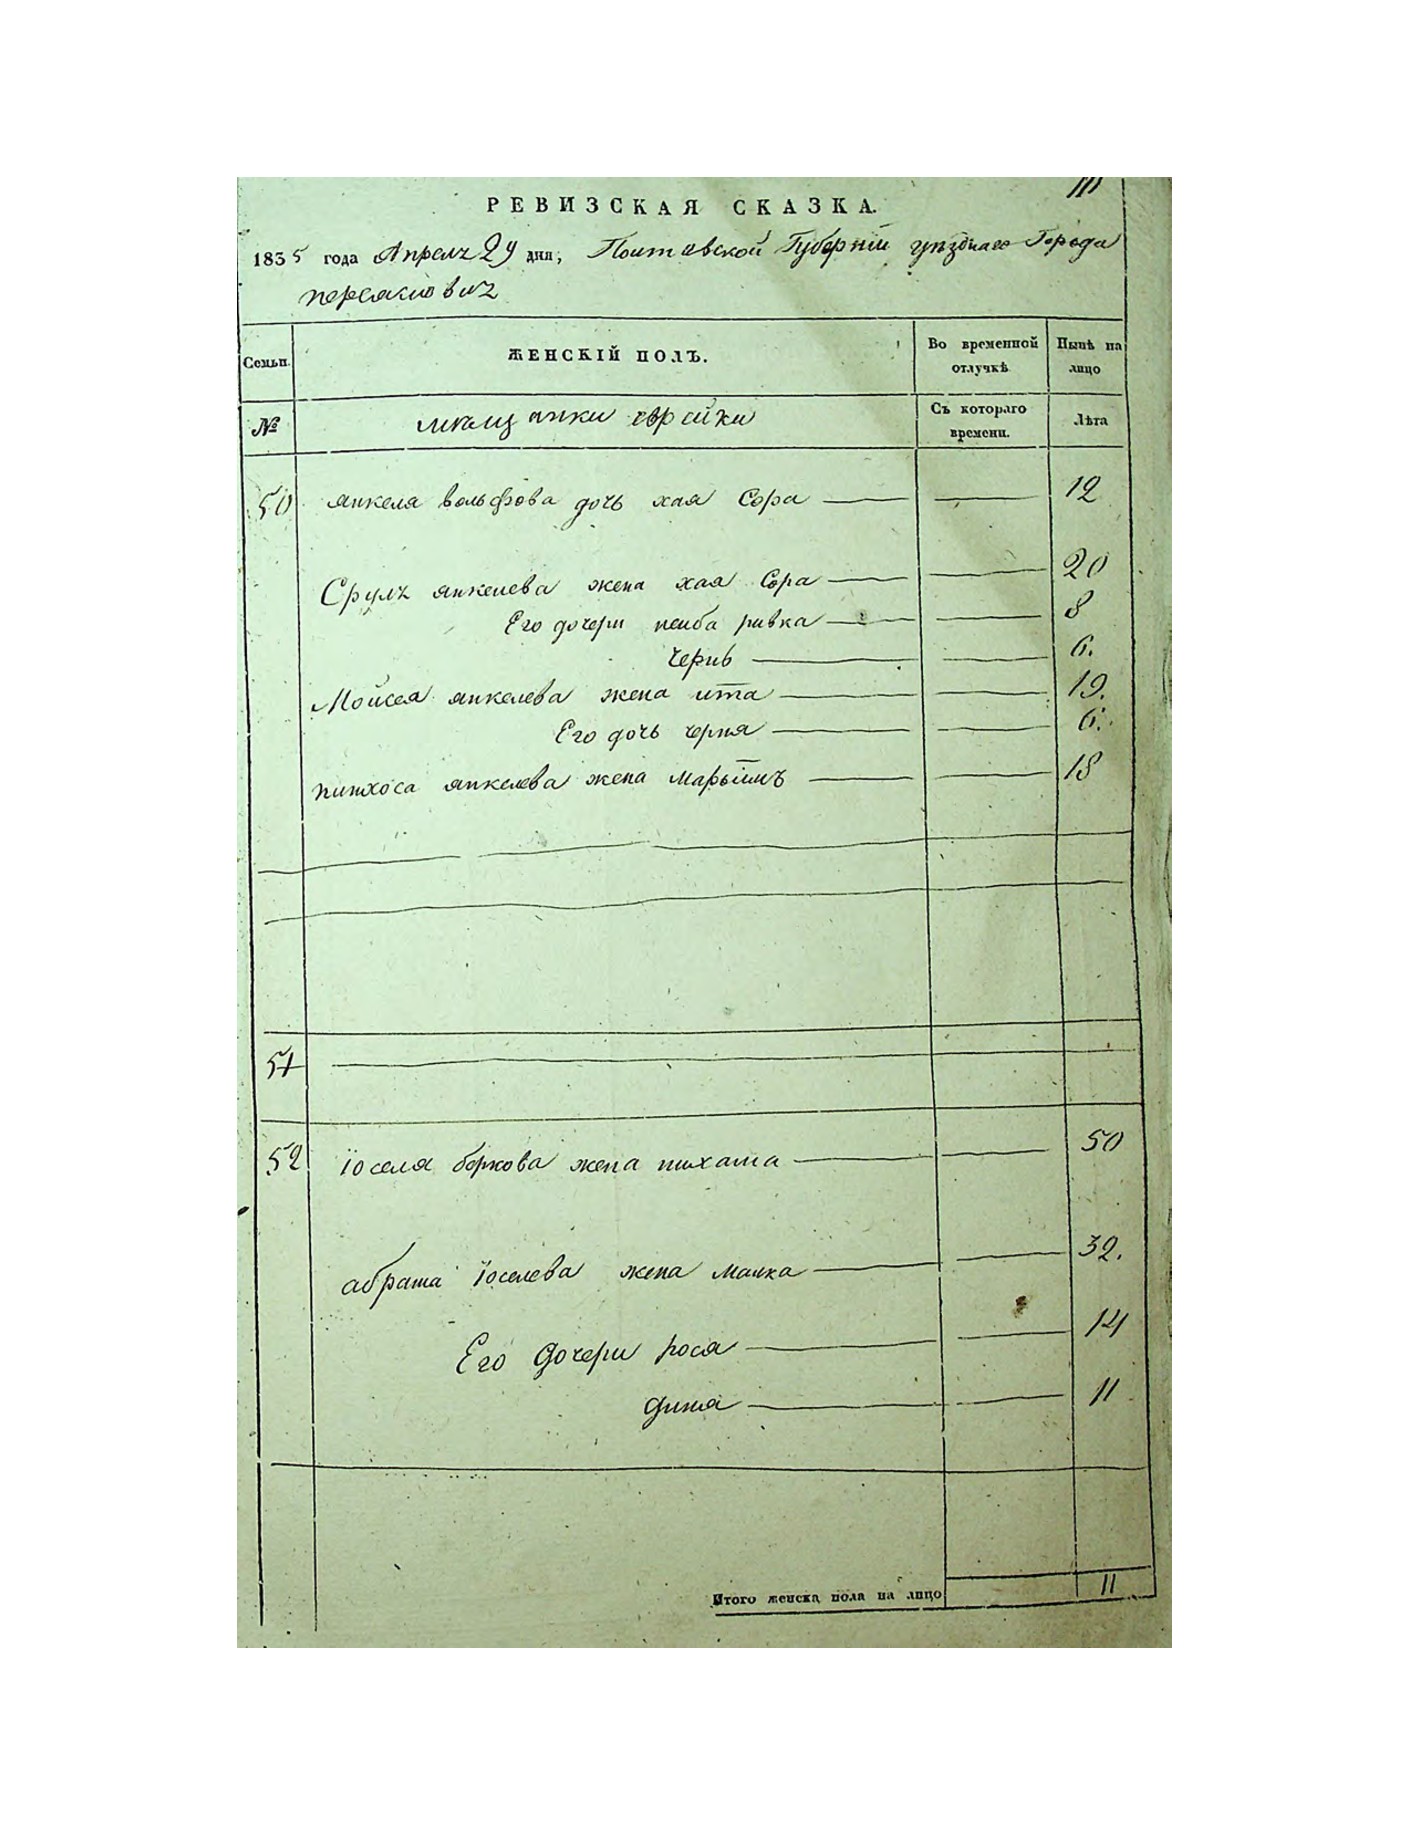 111
РЕВИЗСКАЯ СКАЗКА.
1835 года Апрелъ 29 дня, Полтавской Губернiи уѣзднаго Города
переяслов
Семьи. ЖЕНСКIЙ ПОЛЪ. Во временной отлучкѣ Нынѣ на лицо
№ мѣщанки еврейки Съ котораго времени. Лѣта
50 янкеля вольфова дочь хая Сора 12
Срулъ янкелева жена хая Сора 20
Его дочери ривка 8
6.
Мойсея янкелева жена ита 19.
Его дочь черня 6.
пинхоса янкелева жена марьям 18
51
52 іоселя беркова жена нихама 50
абрама іоселева жена малка 32.
Его дочери рося 14
дина 11
Итого женска пола на лицо 11